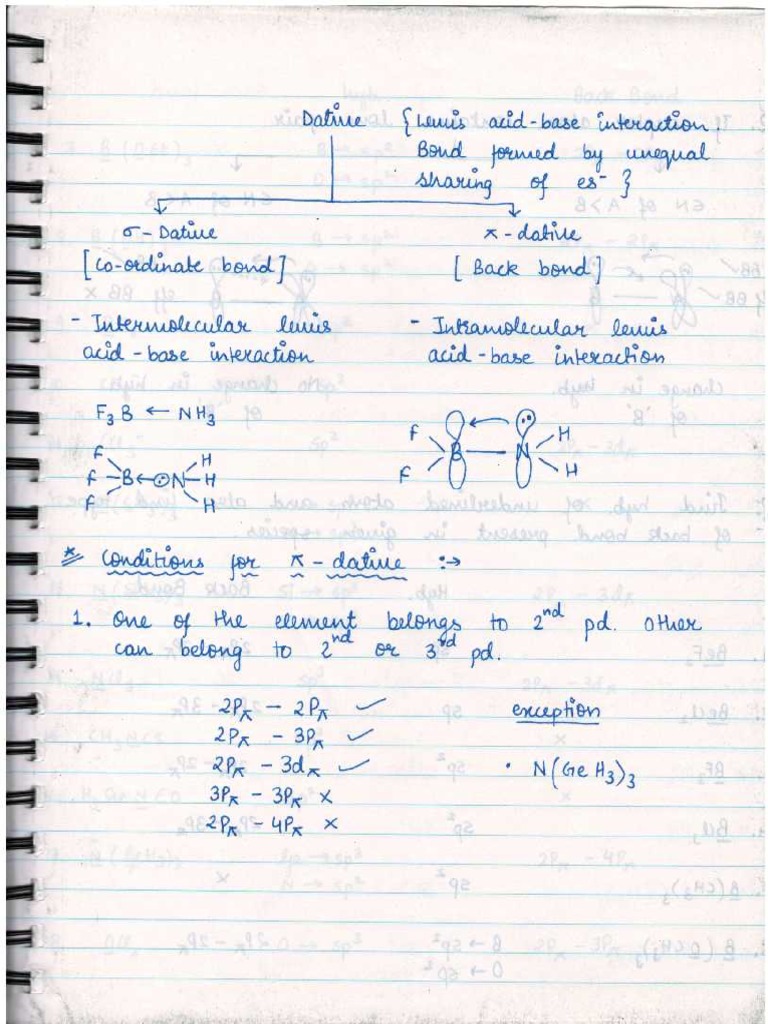 Dative { Lewis acid-base interaction
Bond formed by unequal
sharing of es⁻ }
σ - Dative
π - dative
[ Co-ordinate bond ]
[ Back bond ]
- Intermolecular lewis
acid-base interaction
- Intramolecular lewis
acid-base interaction
F₃B ← NH₃
F
F - B ← N - H
F
H
H
F
F
B — N
H
H
* Conditions for π - dative :→
1. One of the element belongs to 2nd pd. Other
can belong to 2nd or 3rd pd.
2Pπ – 2Pπ ✓
2Pπ – 3Pπ ✓
2Pπ – 3dπ ✓
3Pπ – 3Pπ ×
2Pπ – 4Pπ ×
exception
• N(GeH₃)₃